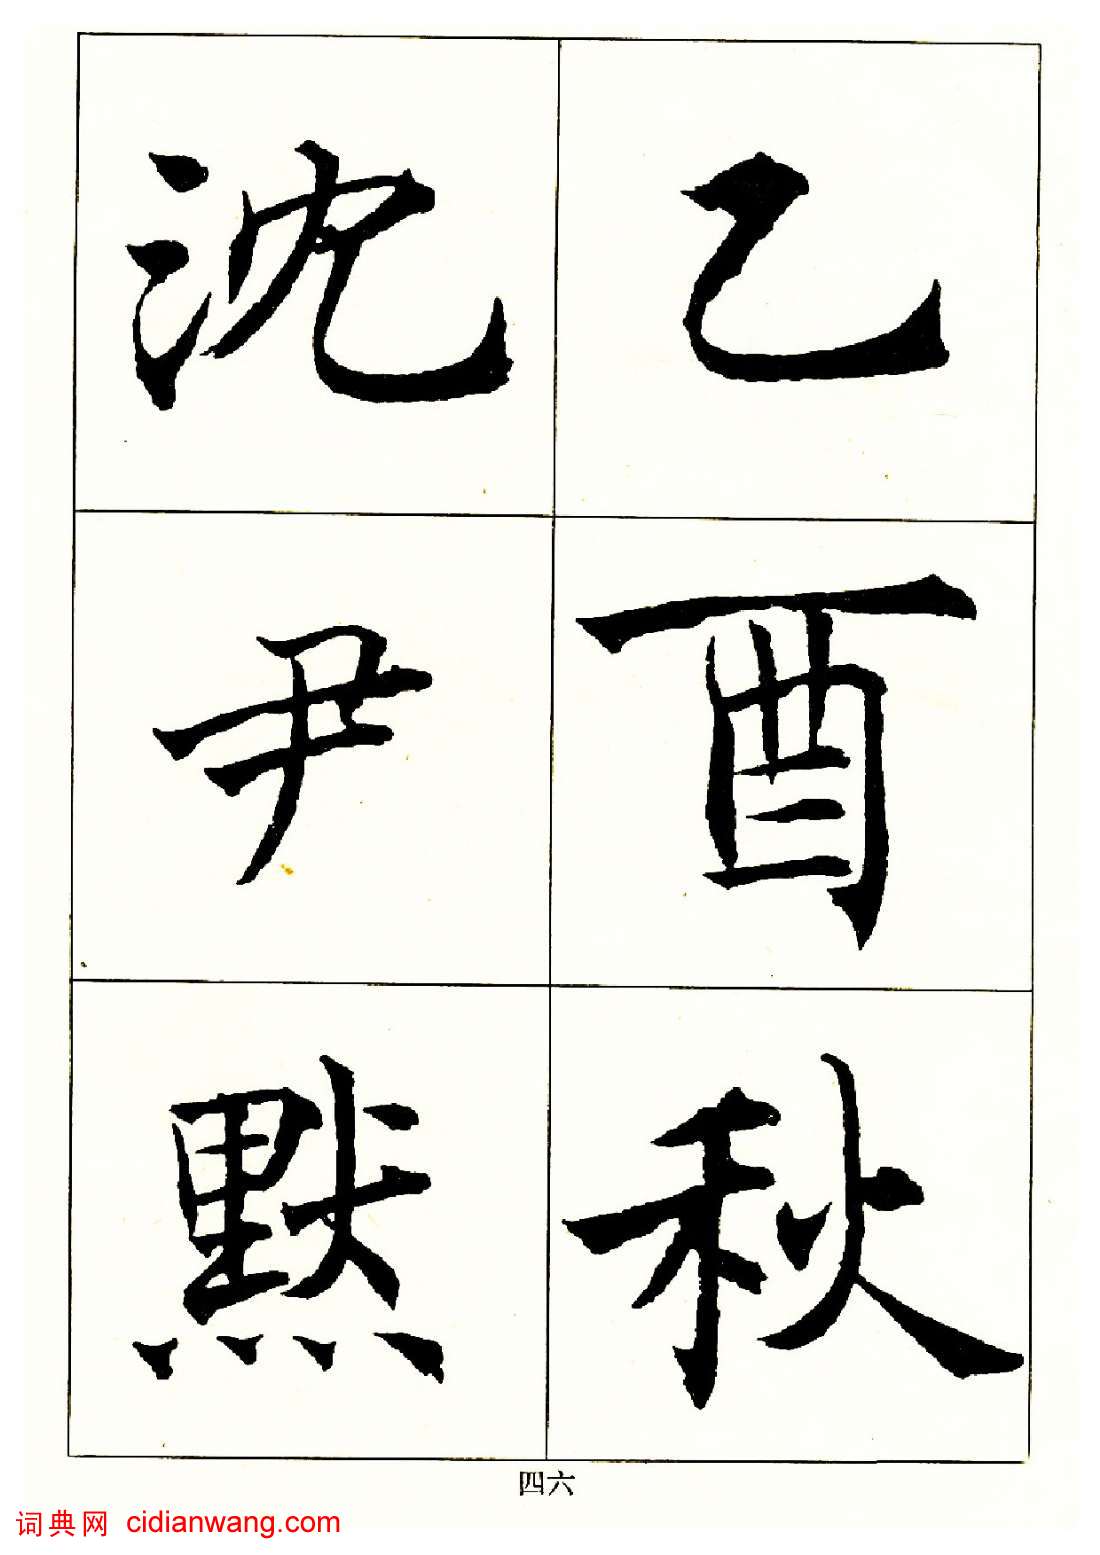 乙酉秋
沈尹默
四六
词典网 cidianwang.com